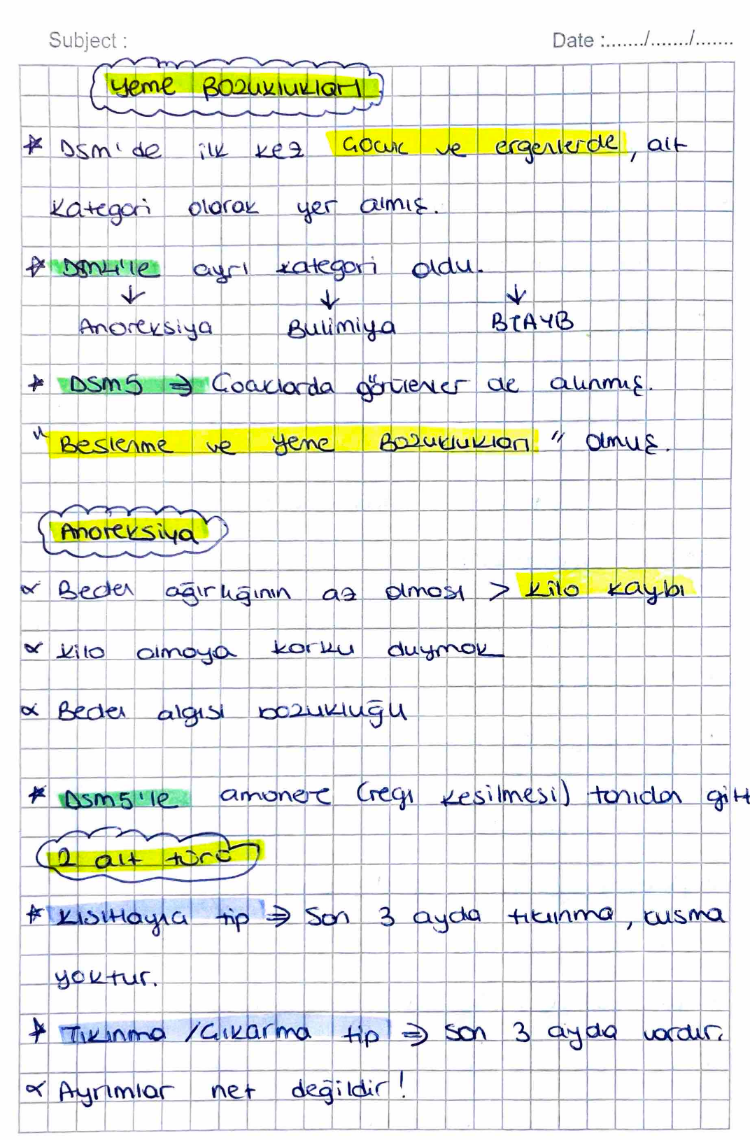 Subject :
Date :......./......./.......
Yeme Bozuklukları
* Dsm'de ilk kez çocuk ve ergenlerde, alt
kategori olarak yer almış.
* Dsm4'le ayrı kategori oldu.
↓ ↓ ↓
Anoreksiya Bulimiya BTAYB
* Dsm5 ⇒ Çocuklarda görülenler de alınmış.
"Beslenme ve yeme Bozuklukları" olmuş.
Anoreksiya
∝ Beden ağırlığının az olması > kilo kaybı
∝ kilo almaya korku duymak
∝ Beden algısı bozukluğu
* Dsm5'le amonere (regl kesilmesi) tanıdan gitt
2 alt türü
* Kısıtlayıcı tip ⇒ Son 3 ayda tıkınma, kusma
yoktur.
* Tıkınma /Çıkarma tip ⇒ Son 3 ayda vardır.
∝ Ayrımlar net değildir!